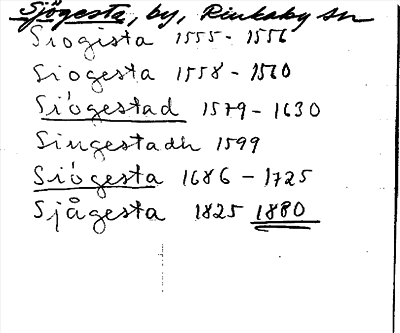 Sjögesta, by, Rinkaby sn
Siogista 1555 - 1556
Siogesta 1558 - 1560
Siögestad 1579 - 1630
Singestadh 1599
Siögesta 1686 - 1725
Sjågesta 1825 1880